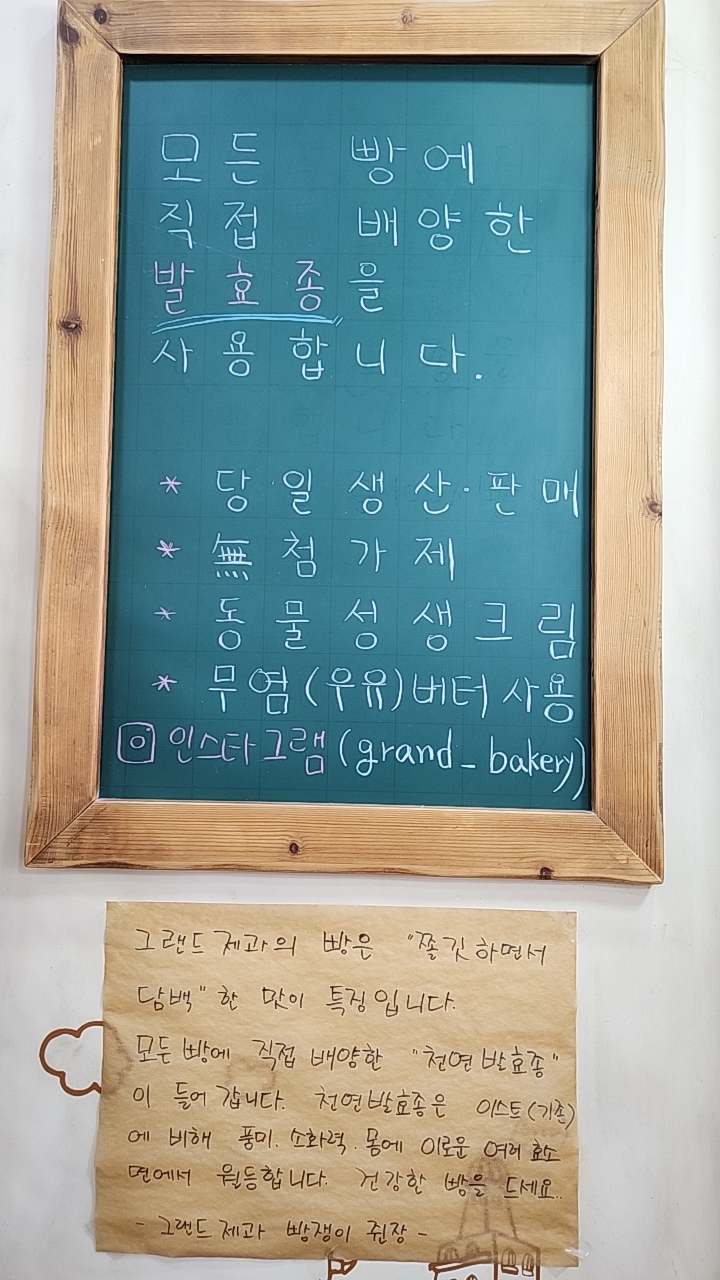 모든 빵에
직접 배양한
발효종을
사용합니다.
* 당일생산·판매
* 無첨가제
* 동물성생크림
* 무염(우유)버터사용
인스타그램(grand_bakery)
그랜드제과의 빵은 "쫄깃하면서
담백"한 맛이 특징입니다.
모든 빵에 직접 배양한 "천연발효종"
이 들어갑니다. 천연발효종은 이스트(기존)
에 비해 풍미. 소화력. 몸에 이로운 여러 효소
면에서 월등합니다. 건강한 빵을 드세요..
- 그랜드제과 빵쟁이 쥔장 -